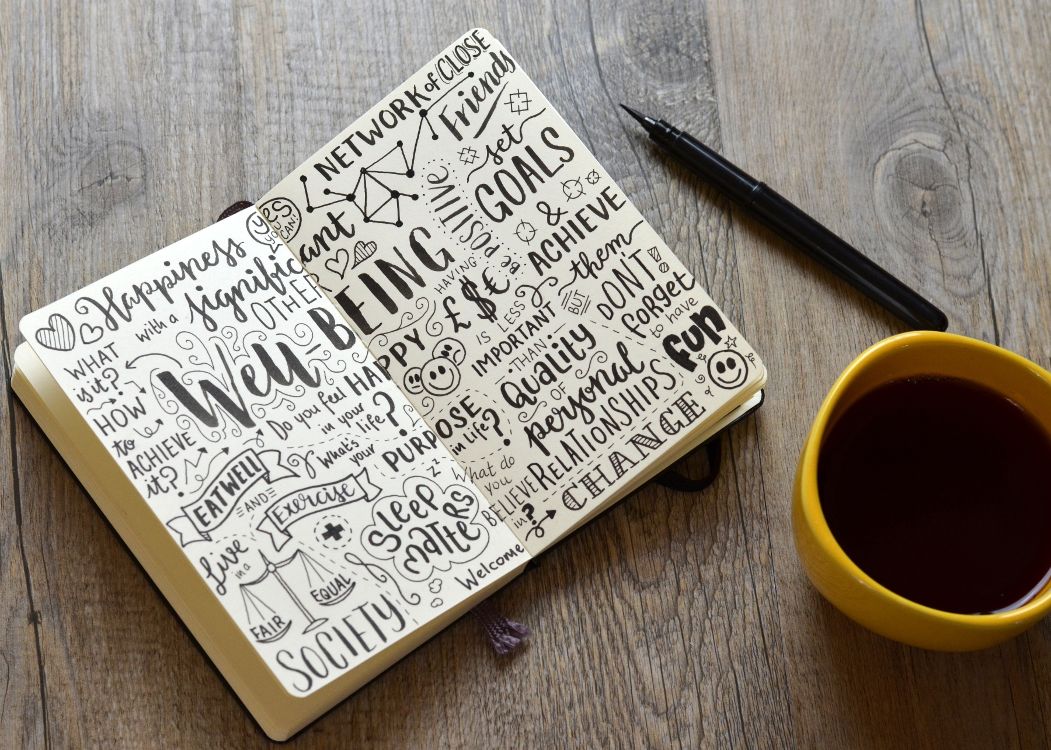 Happiness
with a
significant
OTHER
yes
you
CAN!
WHAT
is it?
HOW
to
ACHIEVE
it?
Well-BEING
Do you feel HAPPY
in your
life?
What's
your
PURPOSE
in life?
EAT WELL
AND
Exercise
zz
Sleep
matters
Live
in a
FAIR
EQUAL
SOCIETY
Welcome
CHANGE
NETWORK of CLOSE
Friends
set
GOALS
&
ACHIEVE
them
HAVING
POSITIVE
BE
£$€
IS LESS
IMPORTANT
BUT
THAN
Quality
OF
personal
RELATIONSHIPS
DON'T
forget
to have
fun
What do
you
BELIEVE
in?